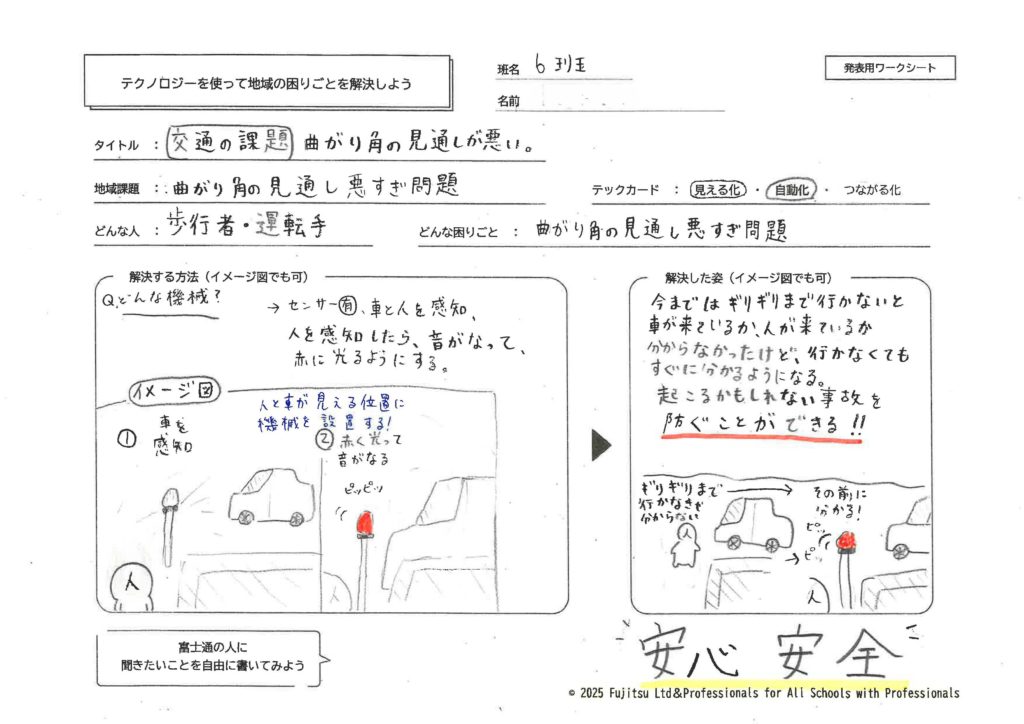 テクノロジーを使って地域の困りごとを解決しよう
班名 6班
発表用ワークシート
名前
タイトル : 交通の課題 曲がり角の見通しが悪い。
地域課題 : 曲がり角の見通し悪すぎ問題
テックカード : 見える化 ・ 自動化 ・ つながる化
どんな人 : 歩行者・運転手
どんな困りごと : 曲がり角の見通し悪すぎ問題
解決する方法（イメージ図でも可）
Q.どんな機械?
→ センサー有、車と人を感知、
人を感知したら、音がなって、
赤に光るようにする。
イメージ図
① 車を
感知
人と車が見える位置に
機械を設置する!
② 赤く光って
音がなる
ピッピッ
人
解決した姿（イメージ図でも可）
今まではギリギリまで行かないと
車が来ているか、人が来ているか
分からなかったけど、行かなくても
すぐに分かるようになる。
起こるかもしれない事故を
防ぐことができる!!
ギリギリまで
行かなきゃ
分からない
→
その前に
分かる!
ピッ
→ ピッ
人
人
安心 安全
富士通の人に
聞きたいことを自由に書いてみよう
© 2025 Fujitsu Ltd&Professionals for All Schools with Professionals